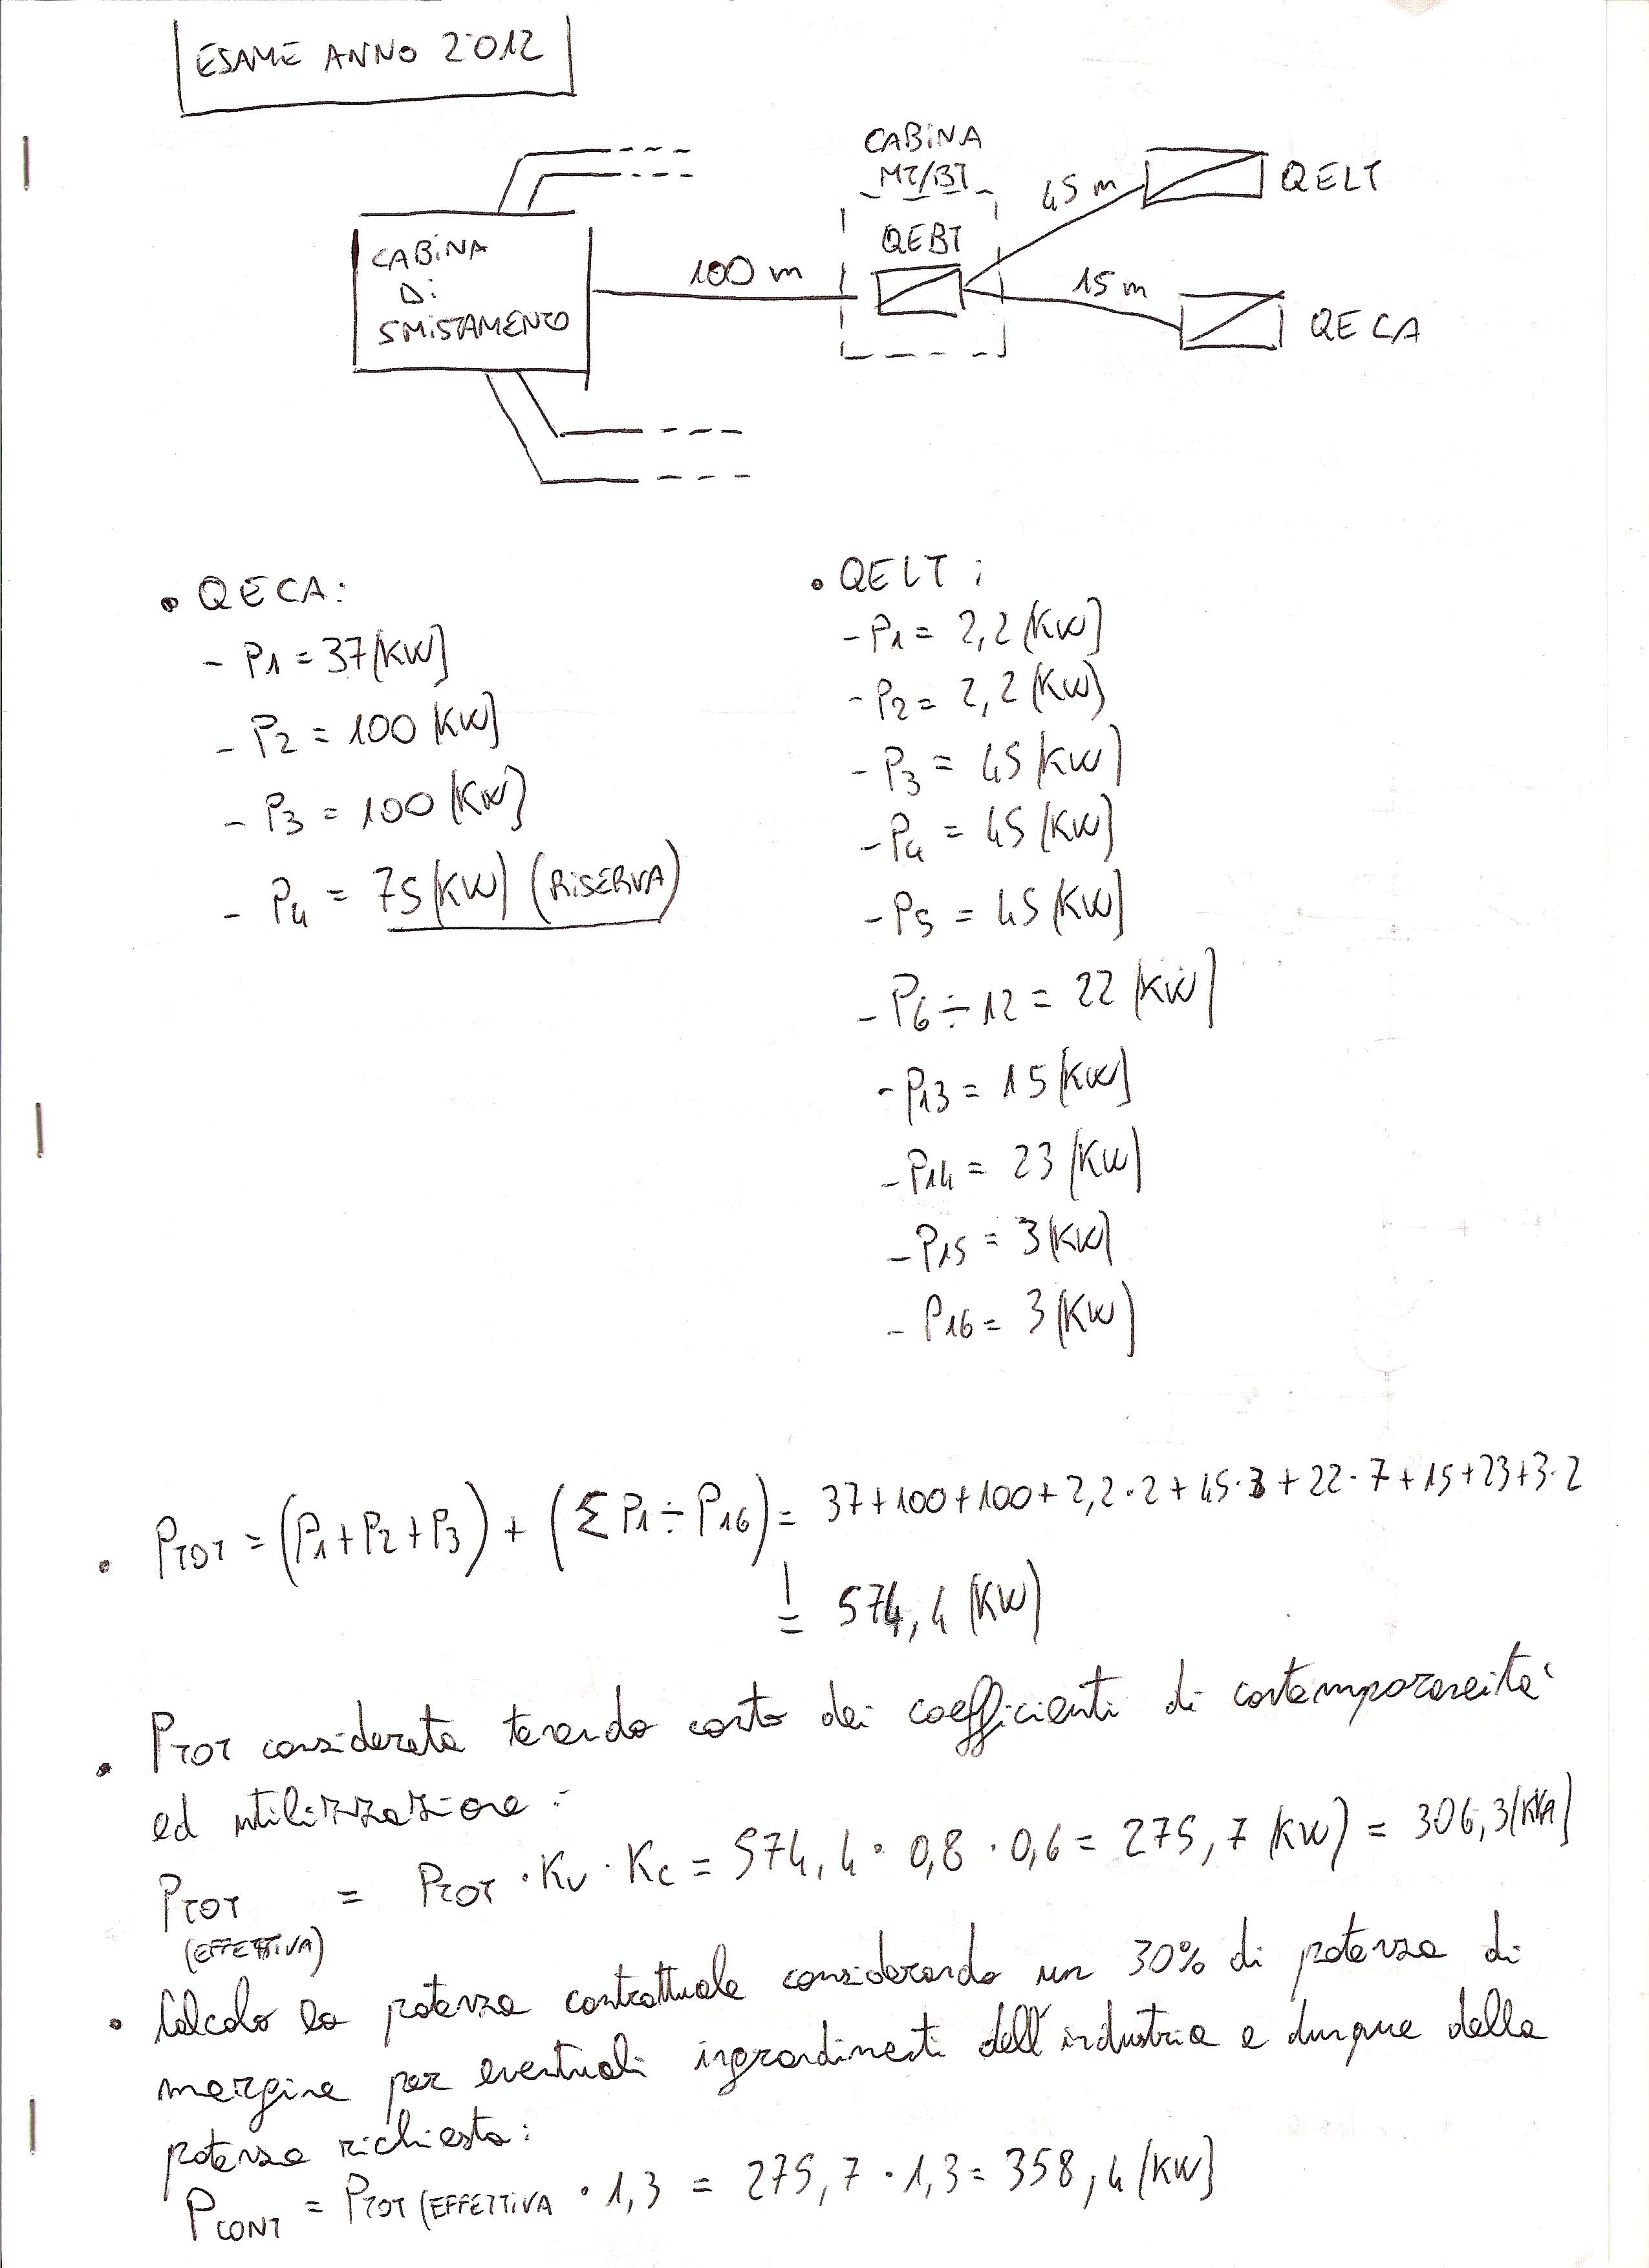 ESAME ANNO 2012
CABINA
MT/BT
QEBT
45 m
QELT
CABINA
DI
SMISTAMENTO
100 m
15 m
QECA
• QECA:
- P1 = 37 [KW]
- P2 = 100 [KW]
- P3 = 100 [KW]
- P4 = 75 [KW] (RISERVA)
• QELT:
- P1 = 2,2 [KW]
- P2 = 2,2 [KW]
- P3 = 45 [KW]
- P4 = 45 [KW]
- P5 = 45 [KW]
- P6 ÷ 12 = 22 [KW]
- P13 = 15 [KW]
- P14 = 23 [KW]
- P15 = 3 [KW]
- P16 = 3 [KW]
• PTOT = (P1 + P2 + P3) + (Σ P1 ÷ P16) = 37+100+100+2,2·2+45·3+22·7+15+23+3·2
= 574,4 [KW]
• PTOT considerata tenendo conto dei coefficienti di contemporaneità
ed utilizzazione:
PTOT = PTOT · KU · KC = 574,4 · 0,8 · 0,6 = 275,7 [KW] = 306,3 [KVA]
(EFFETTIVA)
• Calcolo la potenza contrattuale considerando un 30% di potenza di
margine per eventuali ingrandimenti dell'industria e dunque della
potenza richiesta:
PCONT = PTOT (EFFETTIVA · 1,3 = 275,7 · 1,3 = 358,4 [KW]